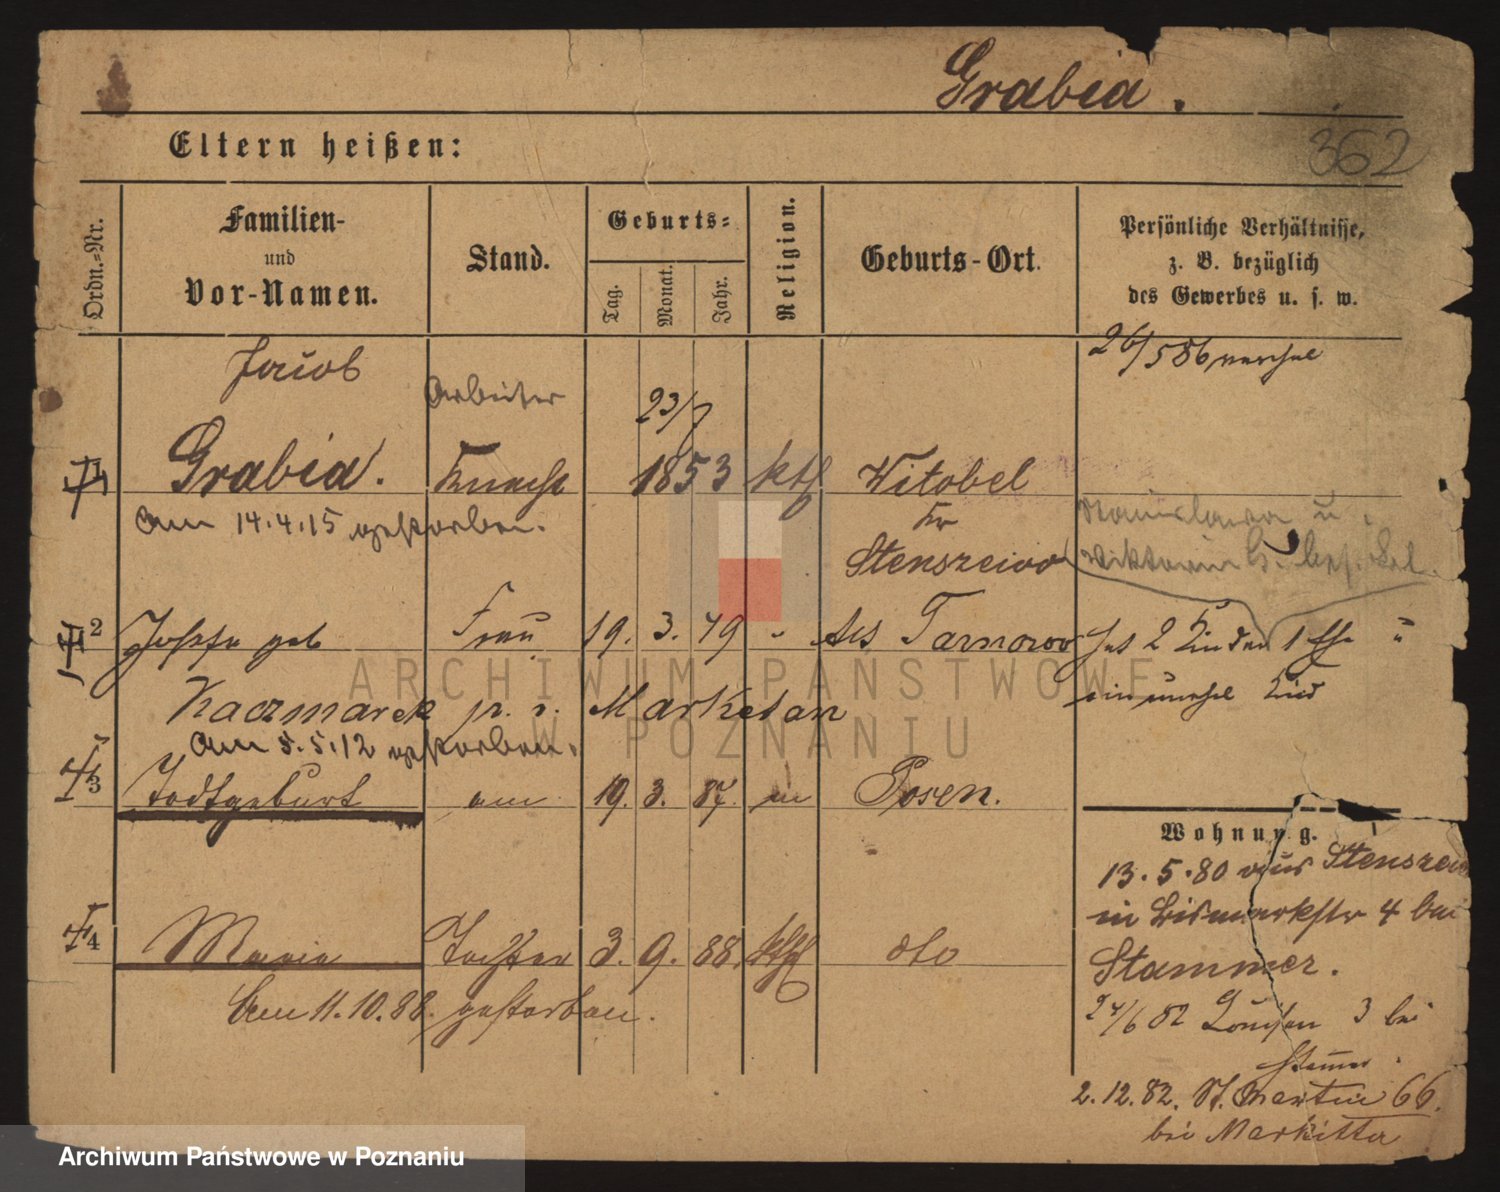 Grabia.
362
Eltern heißen:
Ordn.=Nr.
Familien-
und
Vor-Namen.
Stand.
Geburts=
Tag.
Monat.
Jahr.
Religion.
Geburts-Ort.
Persönliche Verhältnisse,
z. B. bezüglich
des Gewerbes u. s. w.
Jacob
Arbeiter
23/7
26/586
1
Grabia.
Knecht
1853
kth
Witobel
am 14.4.15 gestorben.
Kr
Stenszewo
Stanislawa u.
Viktoria G.
2
Josefa geb
Frau
19. 3. 49
Tarnowo
hat 2 Kinder 1 Ehe u
ein unehel Kind
Kaczmarek
Marketan
am 5.5.12 gestorben.
3
Todtgeburt
am
19. 3. 87.
in
Posen.
Wohnung.
13.5.80 aus Stenszew
in Bismarkstr 4 bei
Stammer.
4
Maria
Tochter
3. 9. 88.
kth
dto
Am 11.10.88. gestorben.
24/6 82
3 bei
2.12.82. St. Martin 66.
bei Markitta
ARCHIWUM PAŃSTWOWE
W POZNANIU
Archiwum Państwowe w Poznaniu